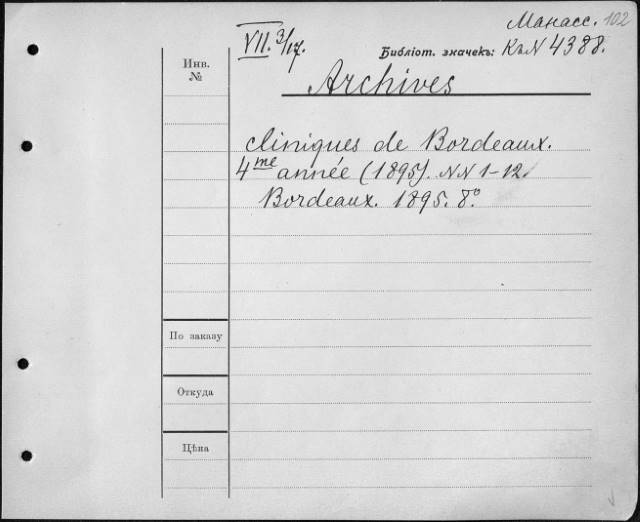 Манасс. 102
VII. 3/17. Библіот. значекъ: КъN 4388.
Инв.
№
Archives
cliniques de Bordeaux.
4me année (1895). NN 1-12.
Bordeaux. 1895. 8°
По заказу
Откуда
Цѣна